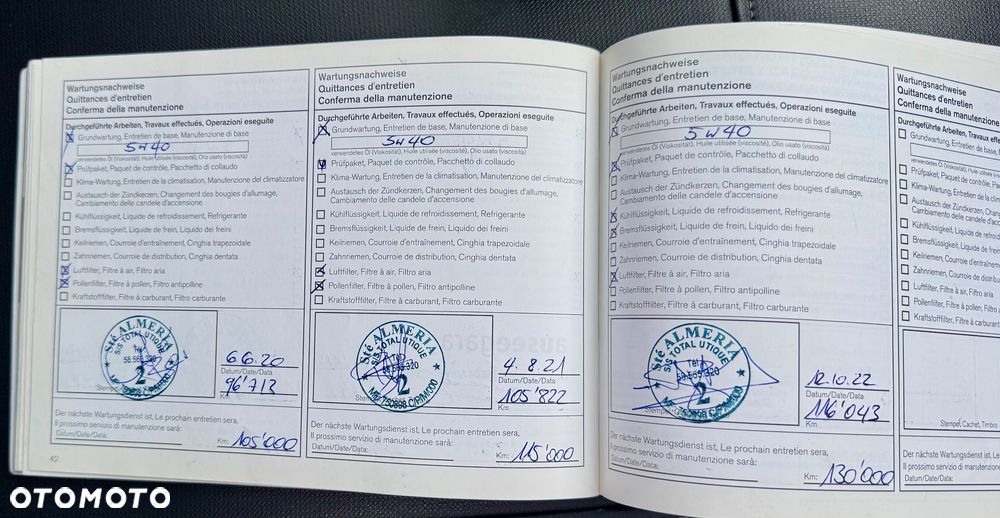 Wartungsnachweise
Quittances d'entretien
Conferma della manutenzione
Durchgeführte Arbeiten, Travaux effectués, Operazioni eseguite
Grundwartung, Entretien de base, Manutenzione di base
5W40
verwendetes Öl (Viskosität), Huile utilisée (viscosité), Olio usato (viscosità)
Prüfpaket, Paquet de contrôle, Pacchetto di collaudo
Klima-Wartung, Entretien de la climatisation, Manutenzione del climatizzatore
Austausch der Zündkerzen, Changement des bougies d'allumage,
Cambiamento delle candele d'accensione
Kühlflüssigkeit, Liquide de refroidissement, Refrigerante
Bremsflüssigkeit, Liquide de frein, Liquido dei freini
Keilriemen, Courroie d'entraînement, Cinghia trapezoidale
Zahnriemen, Courroie de distribution, Cinghia dentata
Luftfilter, Filtre à air, Filtro aria
Pollenfilter, Filtre à pollen, Filtro antipolline
Kraftstofffilter, Filtre à carburant, Filtro carburante
Sté ALMERIA
S/S TOTAL UTIQUE
Tél:
58.565.320
2
6.6.20
Datum/Date/Data
96'713
Km
Der nächste Wartungsdienst ist, Le prochain entretien sera,
Il prossimo servizio di manutenzione sarà:
Datum/Date/Data:
Km: 105'000
42
Wartungsnachweise
Quittances d'entretien
Conferma della manutenzione
Durchgeführte Arbeiten, Travaux effectués, Operazioni eseguite
Grundwartung, Entretien de base, Manutenzione di base
5W40
verwendetes Öl (Viskosität), Huile utilisée (viscosité), Olio usato (viscosità)
Prüfpaket, Paquet de contrôle, Pacchetto di collaudo
Klima-Wartung, Entretien de la climatisation, Manutenzione del climatizzatore
Austausch der Zündkerzen, Changement des bougies d'allumage,
Cambiamento delle candele d'accensione
Kühlflüssigkeit, Liquide de refroidissement, Refrigerante
Bremsflüssigkeit, Liquide de frein, Liquido dei freini
Keilriemen, Courroie d'entraînement, Cinghia trapezoidale
Zahnriemen, Courroie de distribution, Cinghia dentata
Luftfilter, Filtre à air, Filtro aria
Pollenfilter, Filtre à pollen, Filtro antipolline
Kraftstofffilter, Filtre à carburant, Filtro carburante
Sté ALMERIA
S/S TOTAL UTIQUE
Tél:
58.565.320
2
MF:750898 C/P/M/000
4.8.21
Datum/Date/Data
105'822
Km
Der nächste Wartungsdienst ist, Le prochain entretien sera,
Il prossimo servizio di manutenzione sarà:
Datum/Date/Data:
Km: 115'000
Wartungsnachweise
Quittances d'entretien
Conferma della manutenzione
Durchgeführte Arbeiten, Travaux effectués, Operazioni eseguite
Grundwartung, Entretien de base, Manutenzione di base
5W40
verwendetes Öl (Viskosität), Huile utilisée (viscosité), Olio usato (viscosità)
Prüfpaket, Paquet de contrôle, Pacchetto di collaudo
Klima-Wartung, Entretien de la climatisation, Manutenzione del climatizzatore
Austausch der Zündkerzen, Changement des bougies d'allumage,
Cambiamento delle candele d'accensione
Kühlflüssigkeit, Liquide de refroidissement, Refrigerante
Bremsflüssigkeit, Liquide de frein, Liquido dei freini
Keilriemen, Courroie d'entraînement, Cinghia trapezoidale
Zahnriemen, Courroie de distribution, Cinghia dentata
Luftfilter, Filtre à air, Filtro aria
Pollenfilter, Filtre à pollen, Filtro antipolline
Kraftstofffilter, Filtre à carburant, Filtro carburante
Sté ALMERIA
S/S TOTAL UTIQUE
Tél:
58.565.320
2
MF:750898 C/P/M/000
12.10.22
Datum/Date/Data
116'043
Km
Der nächste Wartungsdienst ist, Le prochain entretien sera,
Il prossimo servizio di manutenzione sarà:
Datum/Date/Data:
Km: 130'000
Wartungsnachweise
Quittances d'entretien
Conferma della manutenzione
Durchgeführte Arbeiten, Travaux
Grundwartung, Entretien de base,
verwendetes Öl (Viskosität), Huile utilisée
Prüfpaket, Paquet de contrôle,
Klima-Wartung, Entretien de la
Austausch der Zündkerzen,
Cambiamento delle candele d'acc
Kühlflüssigkeit, Liquide de
Bremsflüssigkeit, Liquide de
Keilriemen, Courroie
Zahnriemen, Courroie de
Luftfilter, Filtre à air, Filtro
Pollenfilter, Filtre à pollen,
Kraftstofffilter, Filtre à
Stempel, Cachet, Timbro
Der nächste Wartungsdienst ist, Le
Il prossimo servizio di manutenzione
Datum/Date/Data:
OTOMOTO